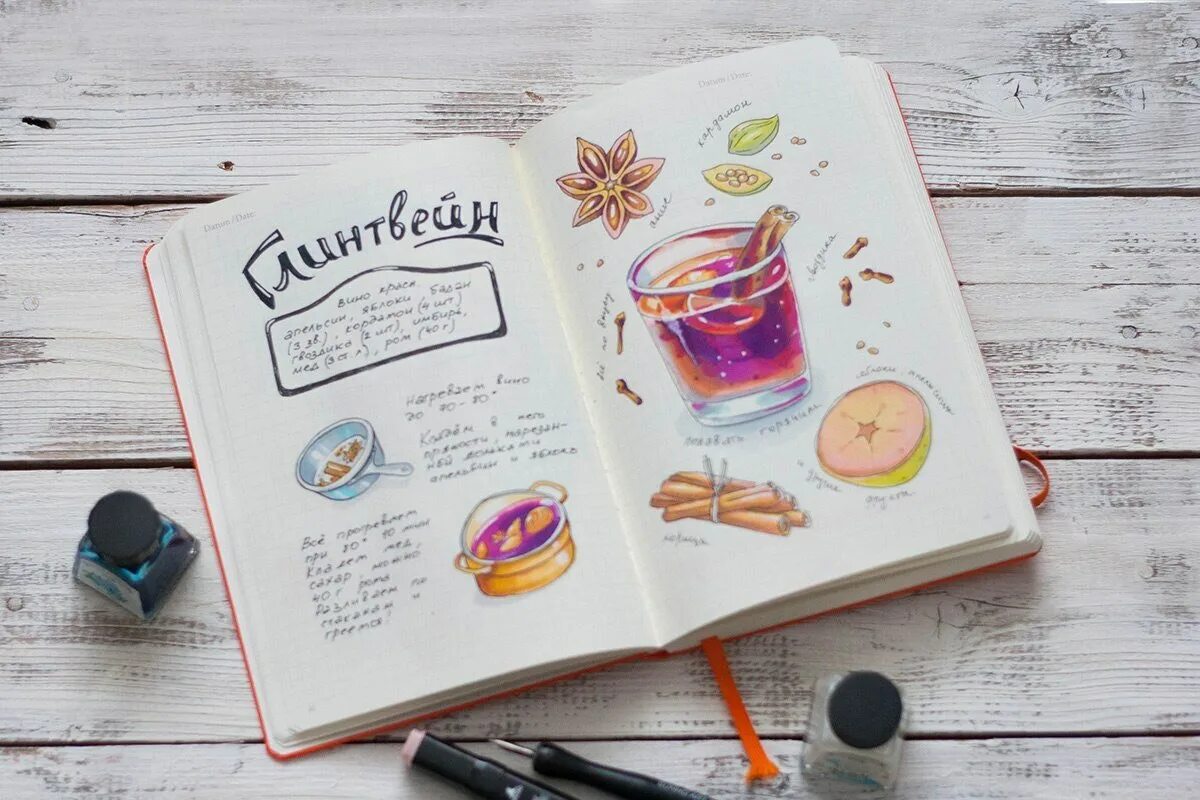 Datum / Date:
Глинтвейн
вино красн. бадан
апельсин, яблоки
(3 зв.), кордамон (4 шт)
гвоздика (2 шт), имбирь,
мед (3 ст.л), ром (40 г)
Нагреваем вино
до 70-80°
Кладём в него
пряности, нарезан-
ный дольками
апельсин и яблоко
Всё прогреваем
при 80° 10 мин
Кладем мед,
сахар, можно
40 г рома
Разливаем по
стаканам и
греемся!
Datum / Date:
кардамон
анис
гвоздика
всё по вкусу
яблоки, апельсины
подавать горячим
и другие
фрукты.
корица